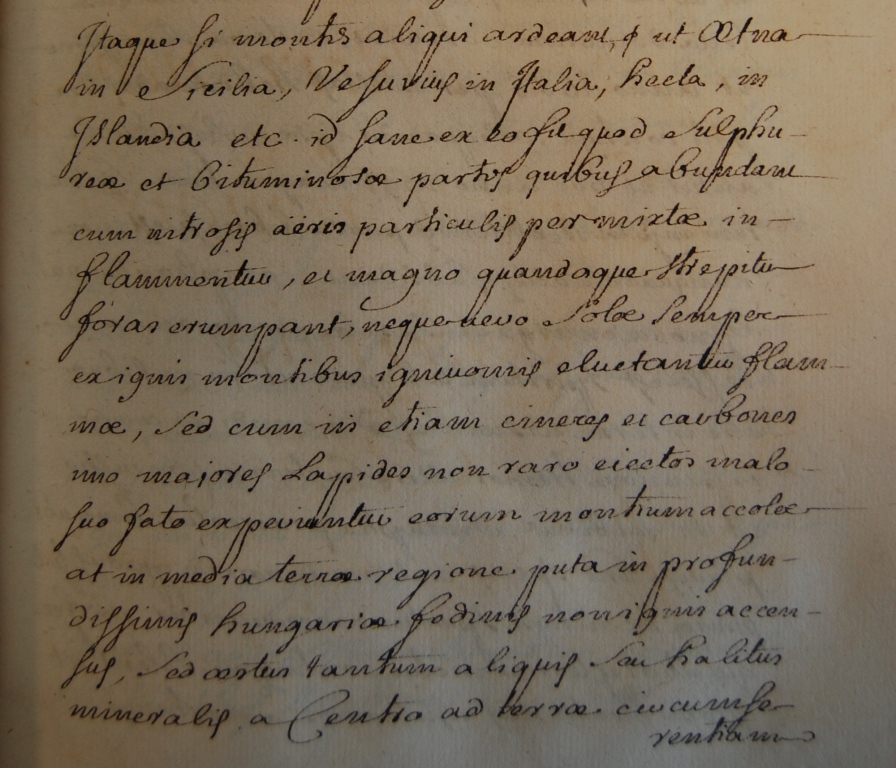 Itaque si montes aliqui ardeant, ut Ætna
in Sicilia, Vesuvius in Italia, hecla, in
Islandia etc. id sane ex eo fit quod Sulphu-
reæ et bituminosæ partes quibus abundant
cum nitrosis aëris particulis permixtæ in-
flammentur, et magno quandoque strepitu
foras erumpant, neque vero Solæ Semper
ex ignis montibus ignivomis eluctantur flam-
mæ, Sed cum iis etiam cineres et carbones
imo majores Lapides non raro eiectos malo
suo fato experiuntur eorum montium accolæ
at in media terræ regione puta in profun-
dissimis hungariæ fodinis non ignis accen-
sus, Sed æstus tantum aliquis Seu halitus
mineralis a Centro ad terræ circumfe-
rentiam